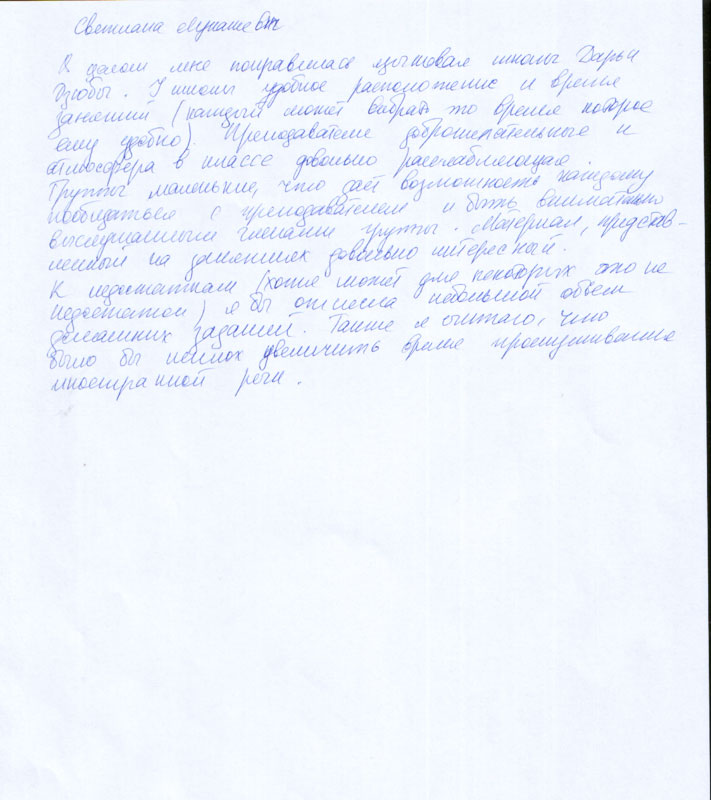 Светлана Лукашевич
В целом мне понравилась языковая школы Дарьи
Дзюбы. У школы удобное расположение и время
занятий (каждый может выбрать то время которое
ему удобно). Преподаватели доброжелательные и
атмосфера в классе довольно расслабляющая.
Группы маленькие, что даёт возможность каждому
пообщаться с преподавателем и быть внимательно
выслушанным членами группы. Материал, представ-
ленный на занятиях довольно интересный.
К недостаткам (хотя может для некоторых это не
недостаток) я бы отнесла небольшой объем
домашних заданий. Также я считаю, что
было бы неплох увеличить время прослушивания
иностранной речи.